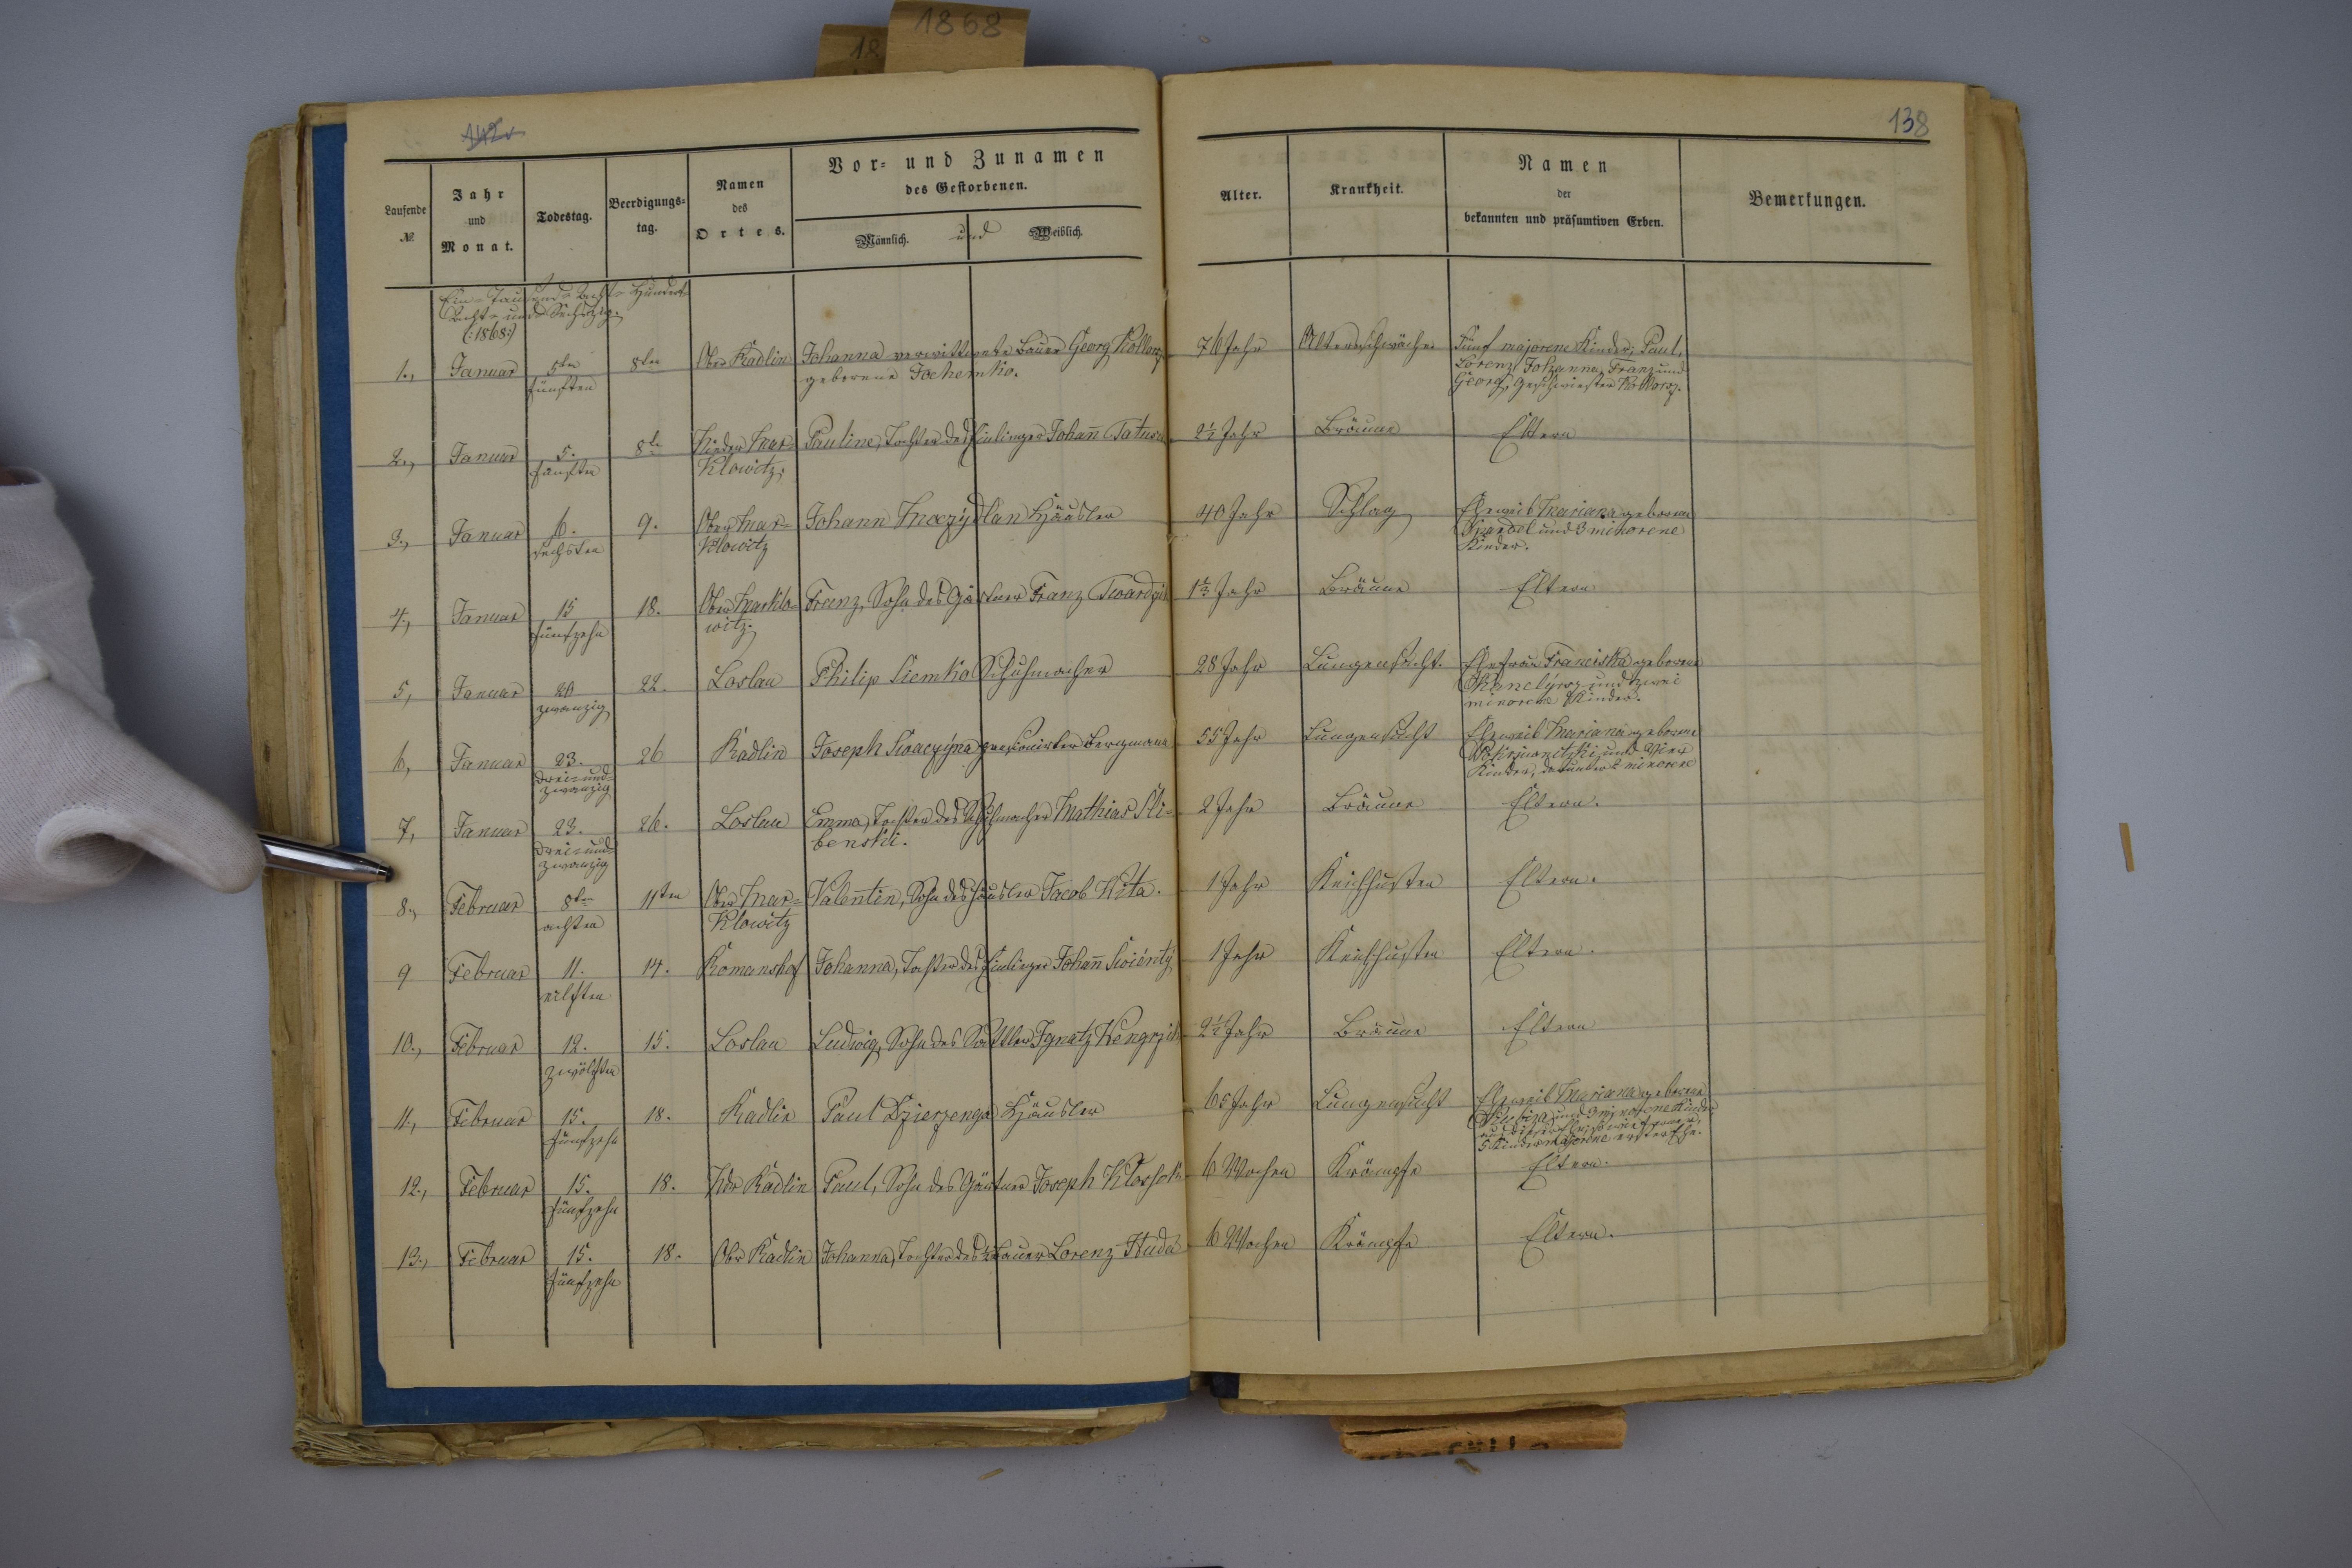 1868
18
142
138
Laufende
№
Jahr
und
Monat.
Todestag.
Beerdigungs-
tag.
Namen
des
Ortes.
Vor- und Zunamen
des Gestorbenen.
Männlich. und Weiblich.
Alter.
Krankheit.
Namen
der
bekannten und präsumtiven Erben.
Bemerkungen.
Ein-Tausend-Acht-Hundert
Acht-und-Sechszig.
(:1868:)
1., Januar 5ten 8ten Ober Radlin Johanna verwittwete Bauer Georg Kollorz 76 Jahr Altersschwäche Fünf majorene Kinder; Paul,
fünften geborene Jochemko. Lorenz, Johanna, Franz und
Georg, Geschwister Kollorz.
2., Januar 5. 8te Nieder Mar- Pauline, Tochter des Einlieger Johan̄ Tatura 2½ Jahr Bräune Eltern
fünften klowitz.
3., Januar 6. 9. Ober Mar- Johann Moczÿdlan Häusler 40 Jahr Schlag Eheweib Mariana geborene
sechsten klowitz und 3 minorene
Kinder.
4., Januar 15 18. Ober Marklo- Franz, Sohn des Gärtner Franz 1½ Jahr Bräune Eltern
fünfzehn witz.
5, Januar 20 22. Loslau Philip Siemko Schuhmacher 28 Jahr Lungensucht. Ehefrau Franciska geborene
zwanzig und zwei
minorene Kinder.
6, Januar 23. 26 Radlin Joseph Swaczÿna pensionirter Bergmann 55 Jahr Lungensucht Eheweib Mariana geborene
drei-und- und Vier
zwanzig Kinder, darunter 2 minorene
7, Januar 23. 26. Loslau Emma, Tochter des Schuhmacher Mathias Sli- 2 Jahr Bräune Eltern.
drei-und- benski.
zwanzig
8., Februar 8ten 11ten Ober Mar- Valentin, Sohn des Häusler Jacob Wita. 1 Jahr Keichhusten Eltern.
achten klowitz
9 Februar 11. 14. Romanshof Johanna, Tochter des Einlieger Johan̄ Swientÿ 1 Jahr Keichhusten Eltern.
eilften
10., Februar 12. 15. Loslau Ludwig, Sohn des Sattler Ignatz 2½ Jahr Bräune Eltern
zwölften
11., Februar 15. 18. Radlin Paul Dzierzenga Häusler 65 Jahr Lungensucht Eheweib Mariana geborene
fünfzehn und 3 minorene Kinder
5 Kinder majorene erster Ehe.
12., Februar 15. 18. Ndr Radlin Paul, Sohn des Gärtner Joseph Klossok 6 Wochen Krämpfe Eltern.
fünfzehn
13., Februar 15. 18. Ober Radlin Johanna, Tochter des ½ Bauer Lorenz Huda 6 Wochen Krämpfe Eltern.
fünfzehn